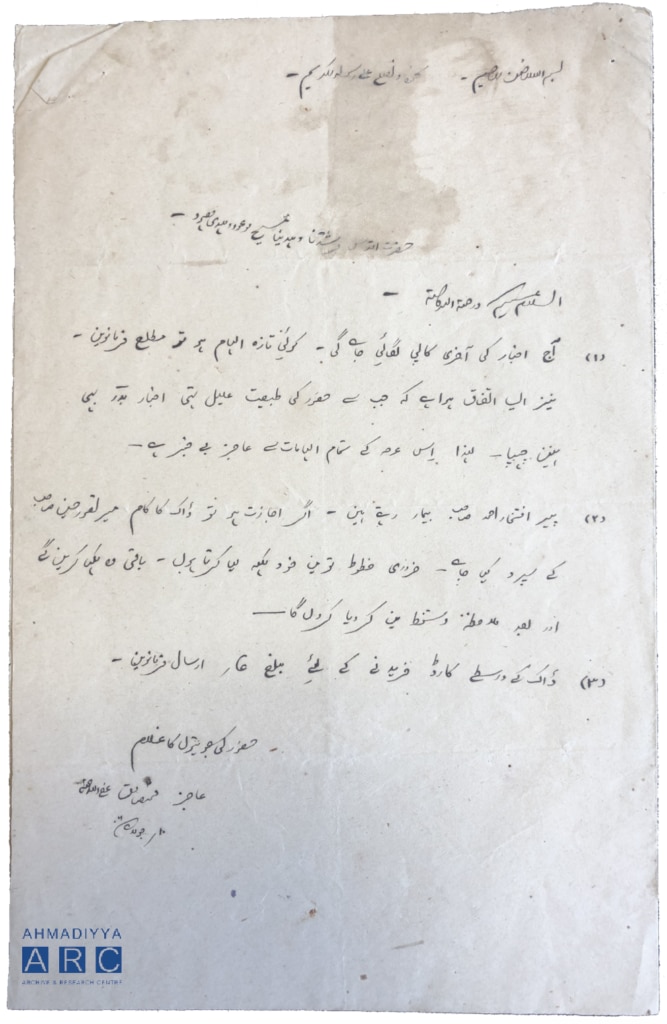 بسم اللہ الرحمن الرحیم - نحمدہ ونصلی علی رسولہ الکریم -
حضرت اقدس مرشدنا و مہدینا مسیح موعود و مہدی معہود -
السلام علیکم ورحمۃ اللہ وبرکاتہ -
(۱) آج اخبار کی آخری کاپی لگائی جاے گی - کوئی تازہ الہام ہو تو مطلع فرمانویں -
نیز ایسا اتفاق ہوا ہے کہ جب سے حضور کی طبیعت علیل تہی اخبار بدر بہی
نہین چہپا - لہذا اِس عرصہ کے تمام الہامات سے عاجز بے خبر ہے -
(۲) پیر افتخار احمد صاحب بیمار رہتے ہین - اگر اجازت ہو تو ڈاک کا کام میر حسین صاحب
کے سپرد کیا جاے - ضروری خطوط تو مین خود لکہہ لیا کرتا ہوں - باقی وہ لکہا کرین گے
اور بعد ملاحظہ دستخط مین کر دیا کروں گا -
(۳) ڈاک کے واسطے کارڈ خریدنے کے لئے مبلغ ارسال فرمانویں -
حضور کی جوتیوں کا غلام
عاجز محمد صادق عفا اللہ عنہ
AHMADIYYA
ARC
ARCHIVE & RESEARCH CENTRE